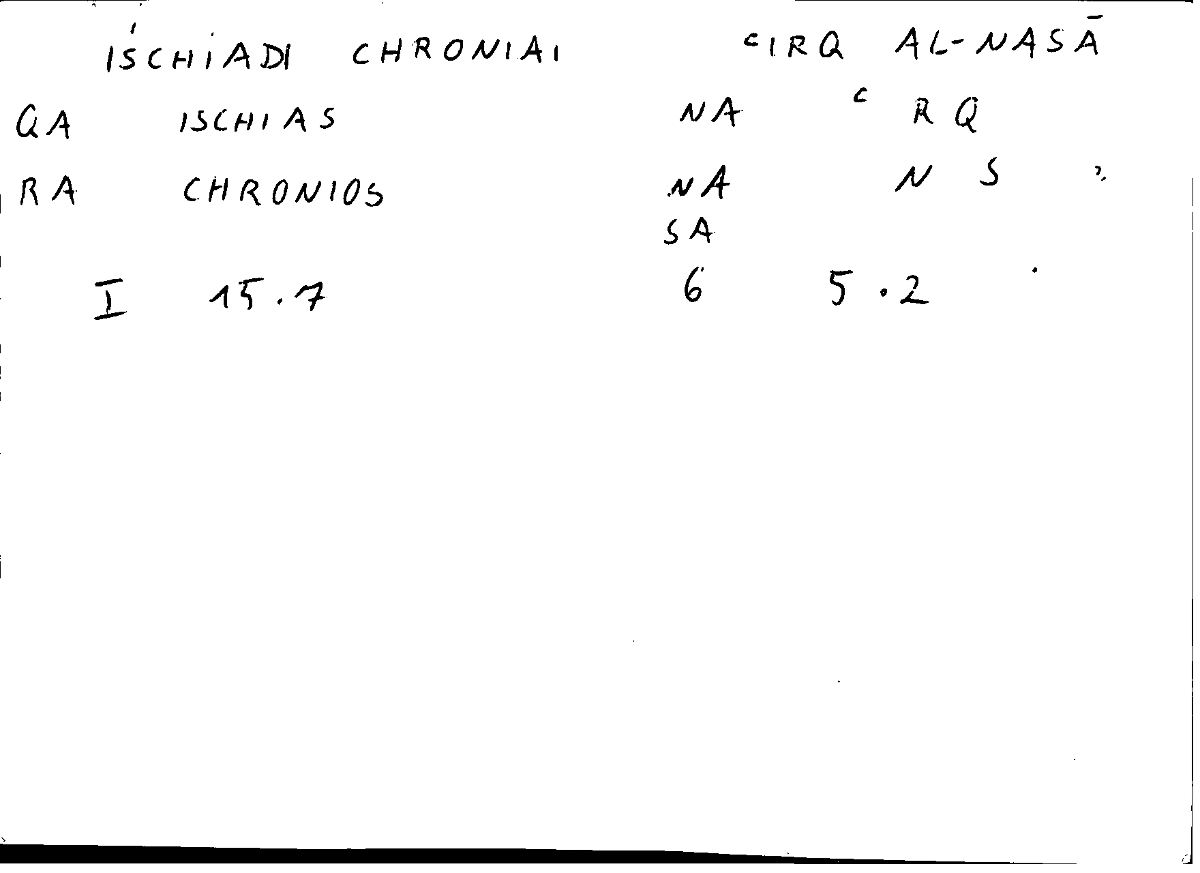 ISCHIADI CHRONIAI ᶜIRQ AL-NASĀ
QA ISCHIAS NA ᶜ R Q
RA CHRONIOS NA N S ʾ
SA
I 15.7 6 5.2